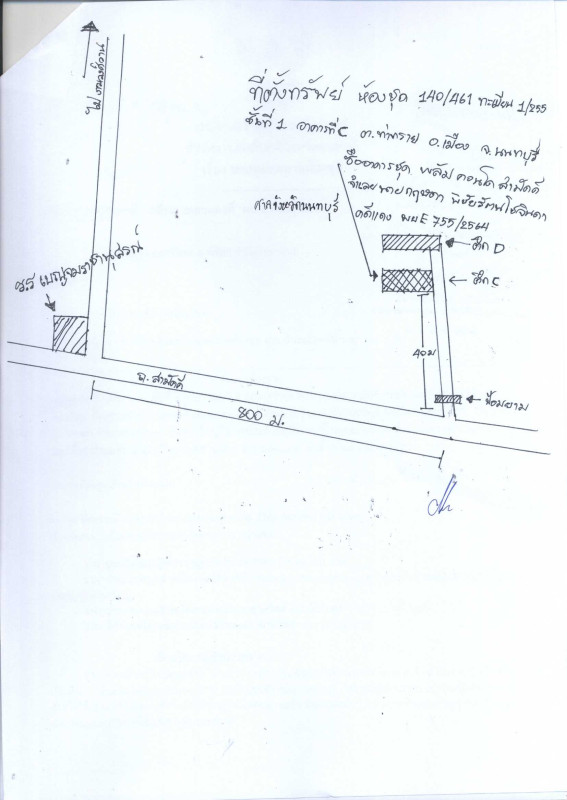 ไปงามวงศ์วาน
ที่ตั้งทรัพย์ ห้องชุด 140/461 ทะเบียน 1/255
ชั้นที่ 1 อาคารที่ C ต.ท่าทราย อ.เมือง จ.นนทบุรี
ชื่ออาคารชุด พลัม คอนโด สามัคคี
จำเลย นายกฤษดา
ศาลจังหวัดนนทบุรี
คดีแดง ผบE 755/2564
ร.ร เบญจมราชานุสรณ์
ตึก D
ตึก C
40 ม
ป้อมยาม
ถ.สามัคคี
800 ม.